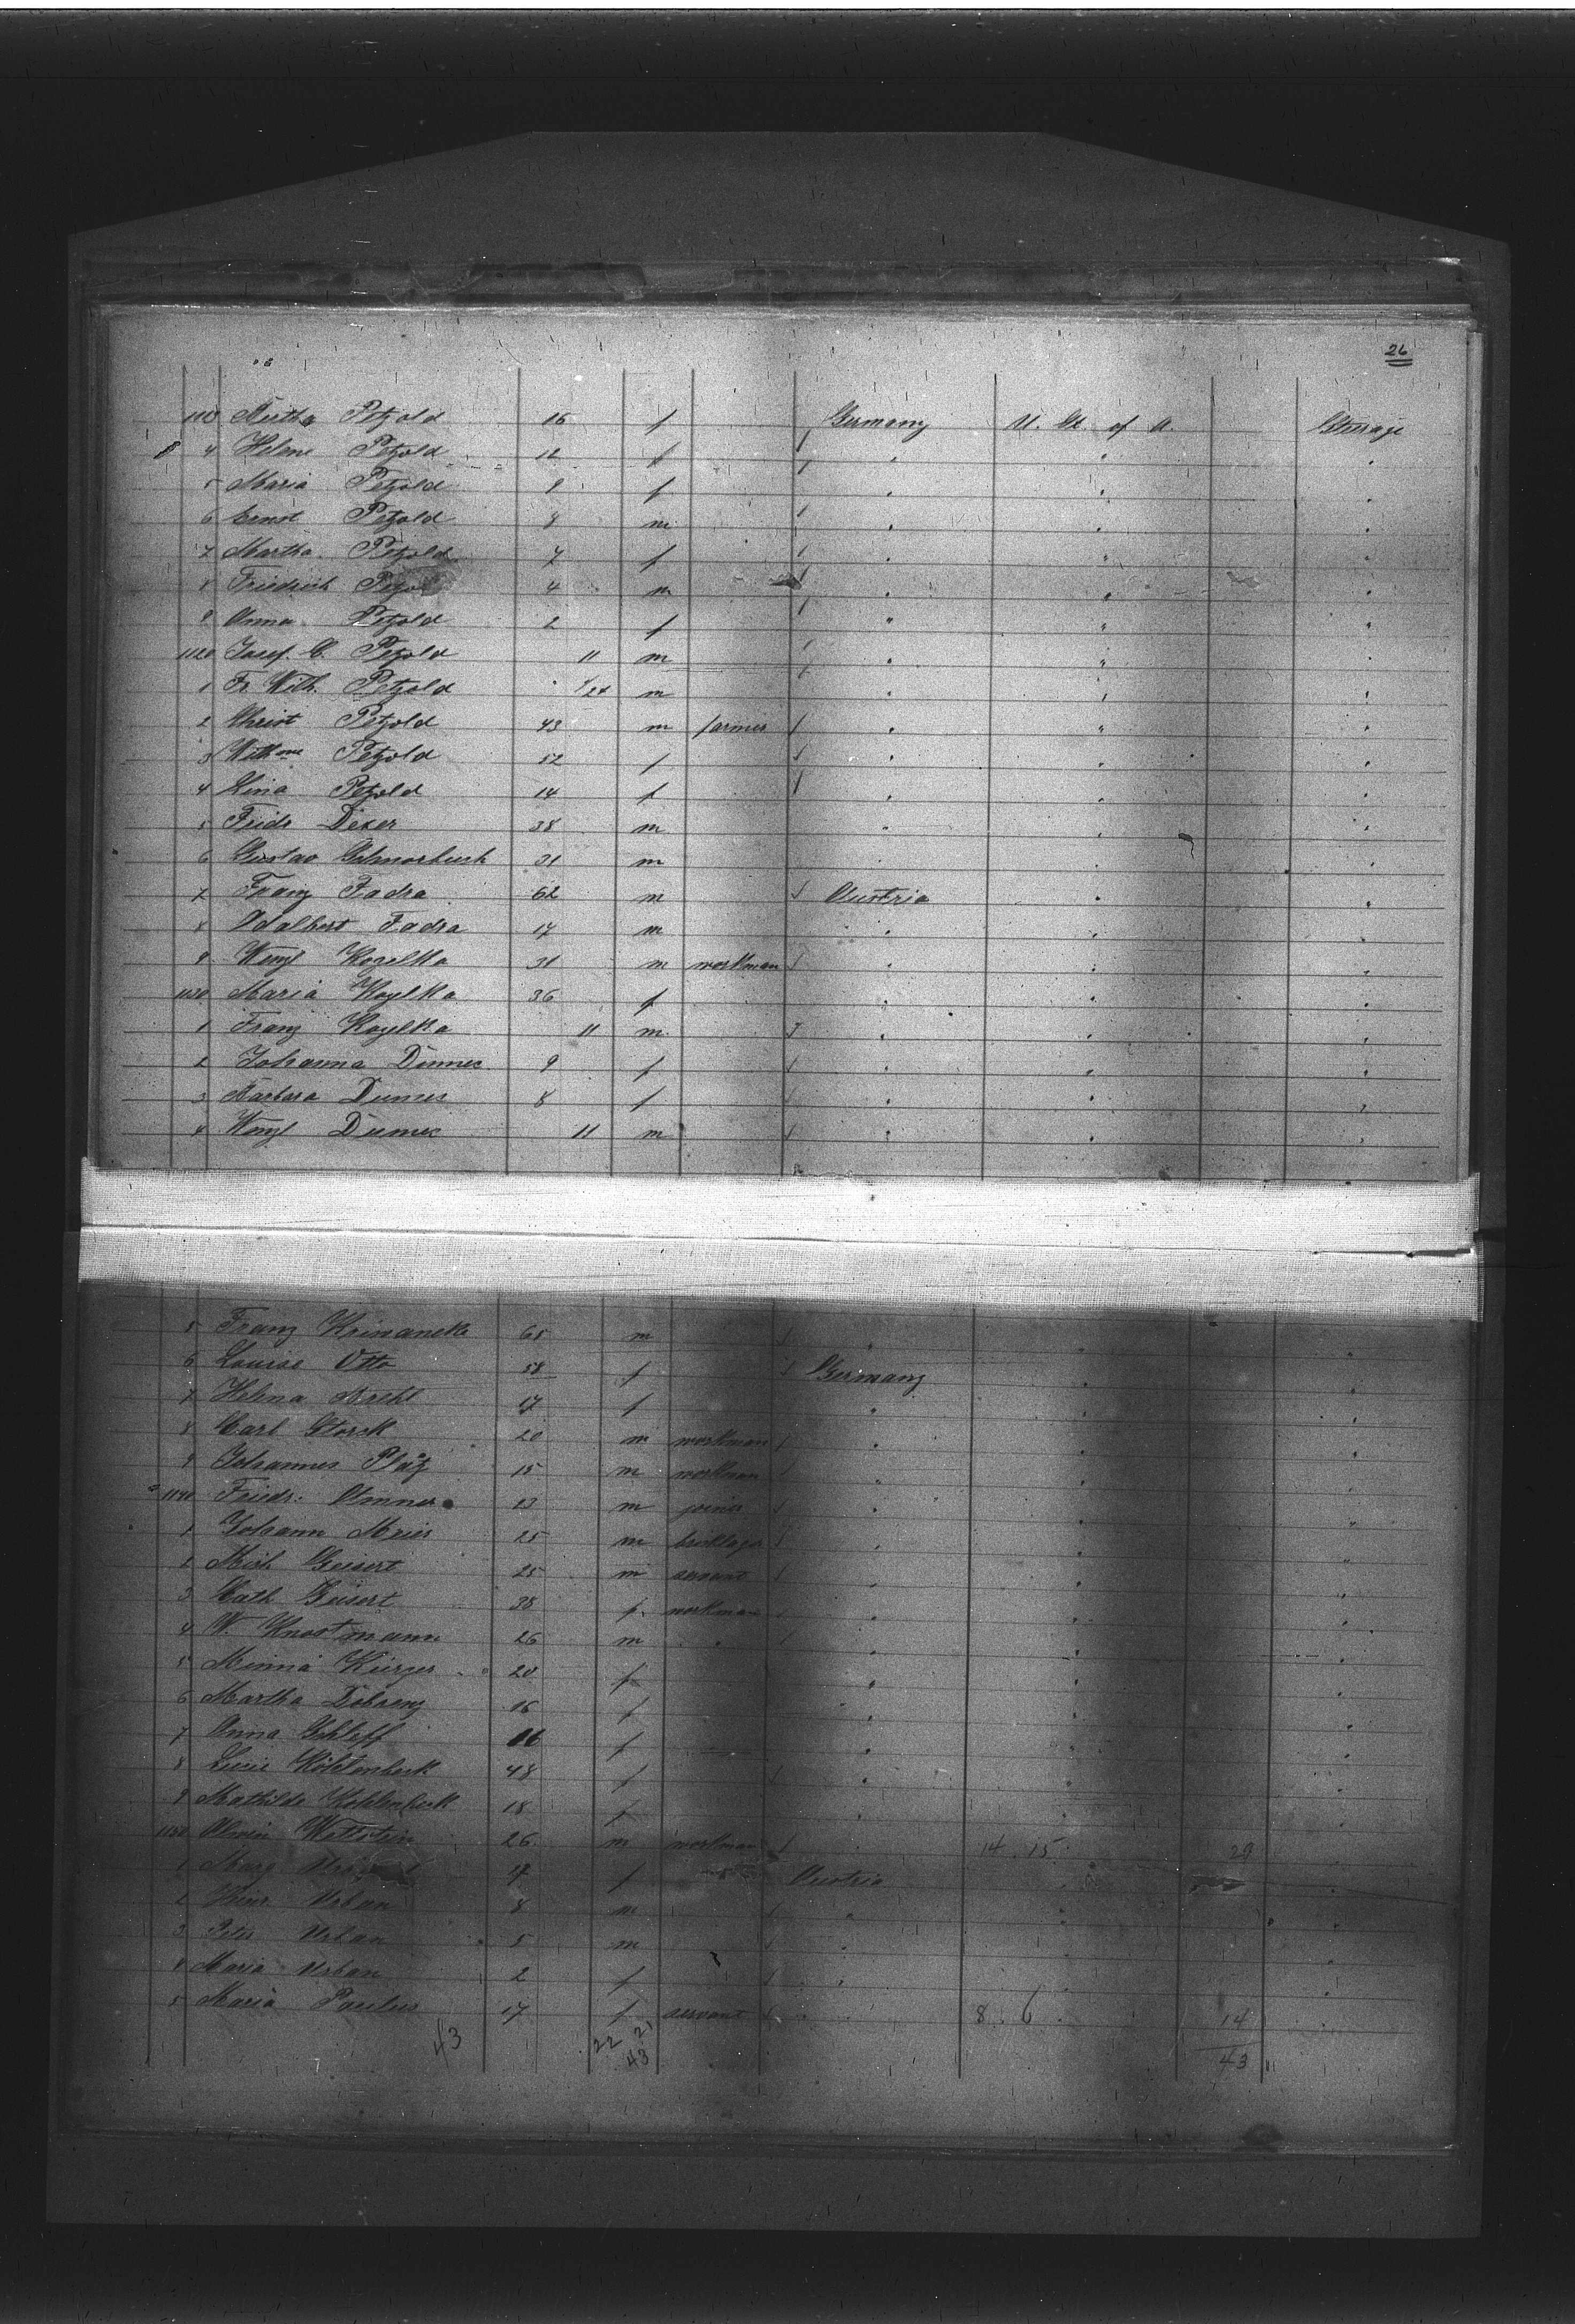 26
1113 Bertha Petzold 16 f Germany U. St. of A. Steerage
4 Helene Petzold 12 f " " "
5 Maria Petzold 9 f " " "
6 Ernst Petzold 8 m " " "
7 Martha Petzold 7 f " " "
8 Friedrich Petzold 4 m " " "
9 Anna Petzold 2 f " " "
1120 Josef. C. Petzold 11 m " " "
1 Fr. Wilh. Petzold 1/24 m " " "
2 Christ Petzold 43 m farmer " " "
3 Petzold 52 f " " "
4 Lina Petzold 14 f " " "
5 Friedr Dexer 38 m " " "
6 Gustav 31 m " " "
7 Franz Fadra 62 m Austria " "
8 Adalbert Fadra 17 m " " "
9 Wenzl Kozelka 31 m workman " " "
1130 Maria Kozelka 36 f " " "
1 Franz Kozelka 11 m " " "
2 Johanna Dumec 9 f " " "
3 Barbara Dumec 8 f " " "
4 Wenzl Dumec 11 m " " "
5 Franz 65 m " " "
6 Louise Otto 58 f Germany " "
7 Helena 17 f " " "
8 Carl Storck 20 m workman " " "
9 Johannes Platz 15 m workman " " "
1140 Friedr. 23 m joiner " " "
1 Johann Meier 25 m " " "
2 Mich Geisert 25 m servant " " "
3 Cath Geisert 38 f workman " " "
4 W. Knostmann 26 m " " " "
5 Minna 20 f " " "
6 Martha 16 f " " "
7 Anna 16 f " " "
8 Kohlenbeck 48 f " " "
9 Mathilde Kohlenbeck 18 f " " "
1150 Wettstein 26 m workman " 14. 15. 29 "
1 Marg 17 f Austria " "
2 Urban 8 m " " "
3 Peter Urban 5 m " " "
4 Maria Urban 2 f " " "
5 Maria Paulus 17 f servant " 8. 6 14 "
43 22 21 43
43